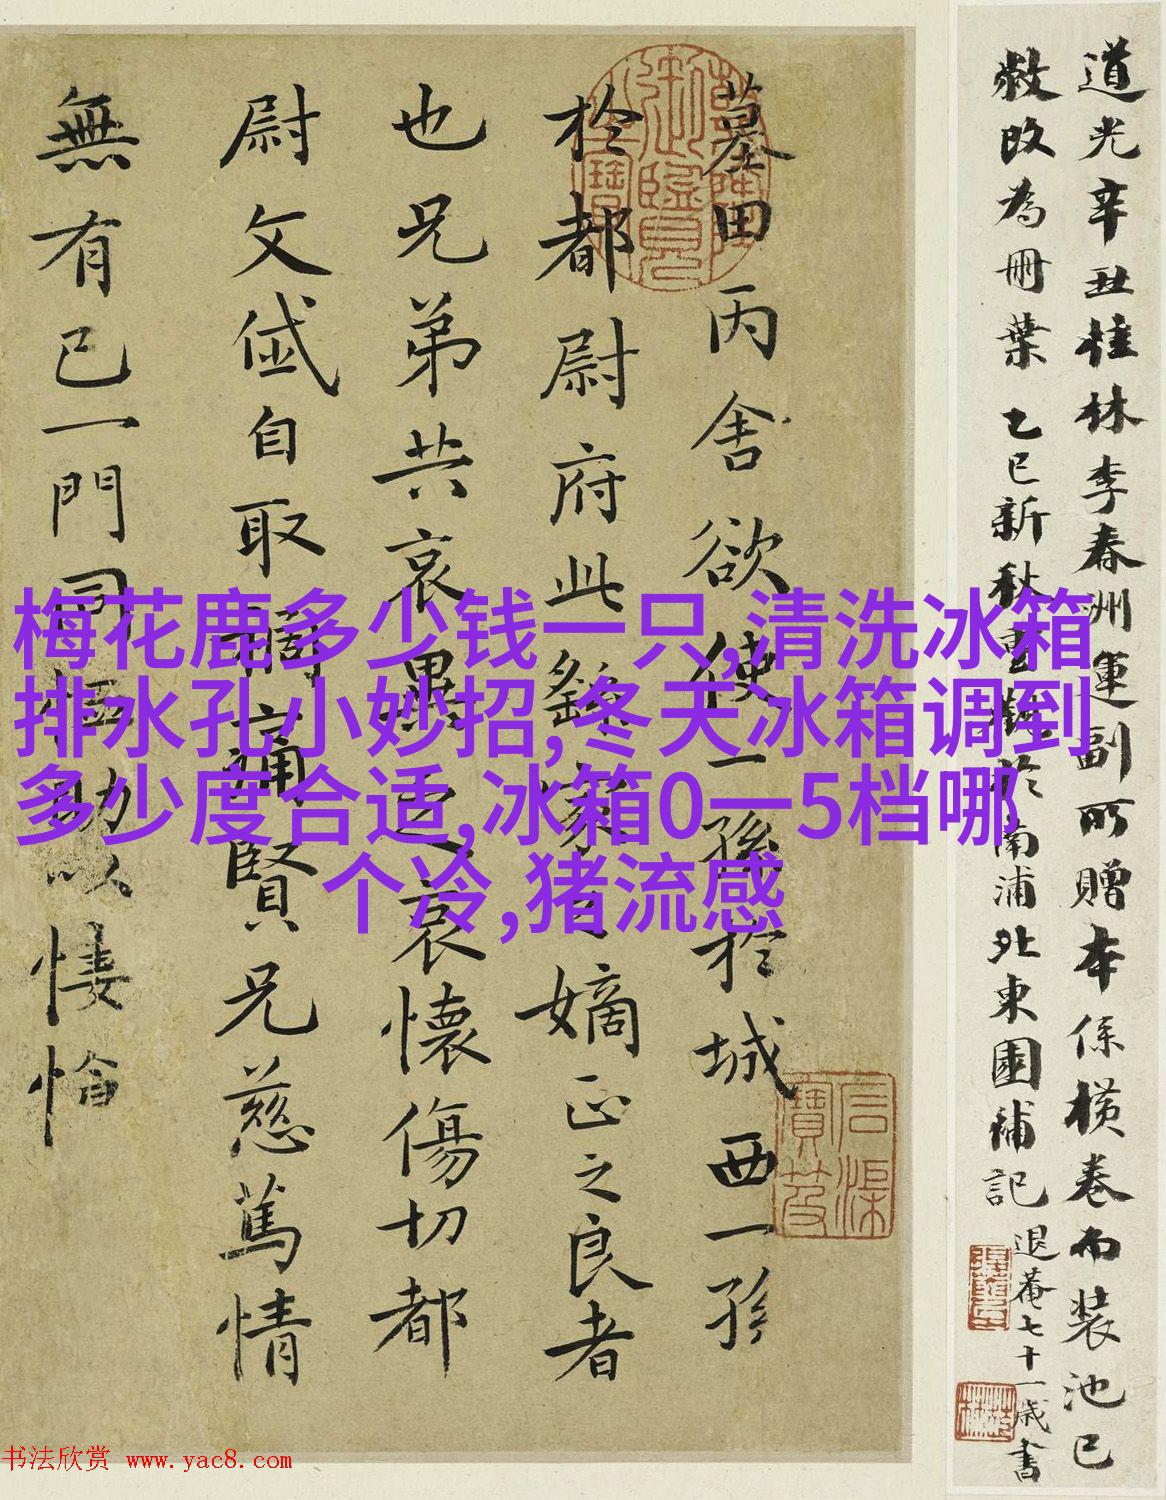 道光辛丑桂林李春洲運副所贈本係橫卷而裝池已
敝改為冊葉 乙巳新秋重觀於南浦北東園補記 退菴七十一歲書
墓田丙舍欲使一孫於城西一孫
於都尉府此繇家之嫡正之良者
也兄弟共哀異之哀懷傷切都
尉文岱自取禍痛賢兄慈篤情
無有已一門同恤助以悽愴
御覽
梅花鹿多少钱一只,清洗冰箱
排水孔小妙招,冬天冰箱调到
多少度合适,冰箱0一5档哪
个冷,猪流感
书法欣赏 www.yac8.com